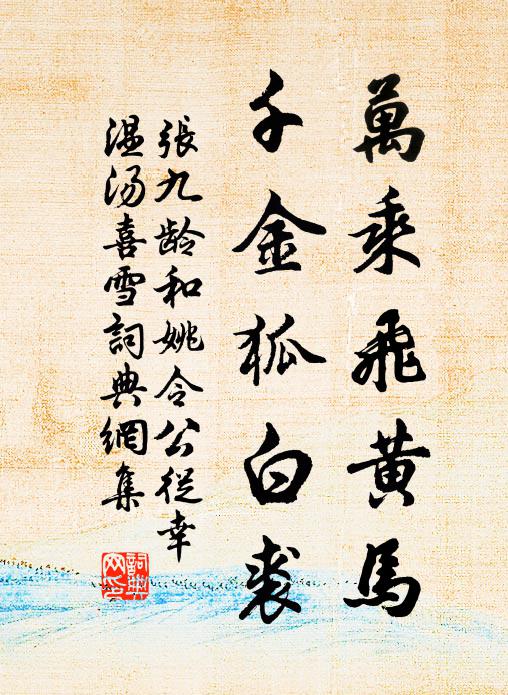 萬乘飛黃馬
千金狐白裘
張九龄和姚令公從幸
温汤喜雪詞典網集
詞典